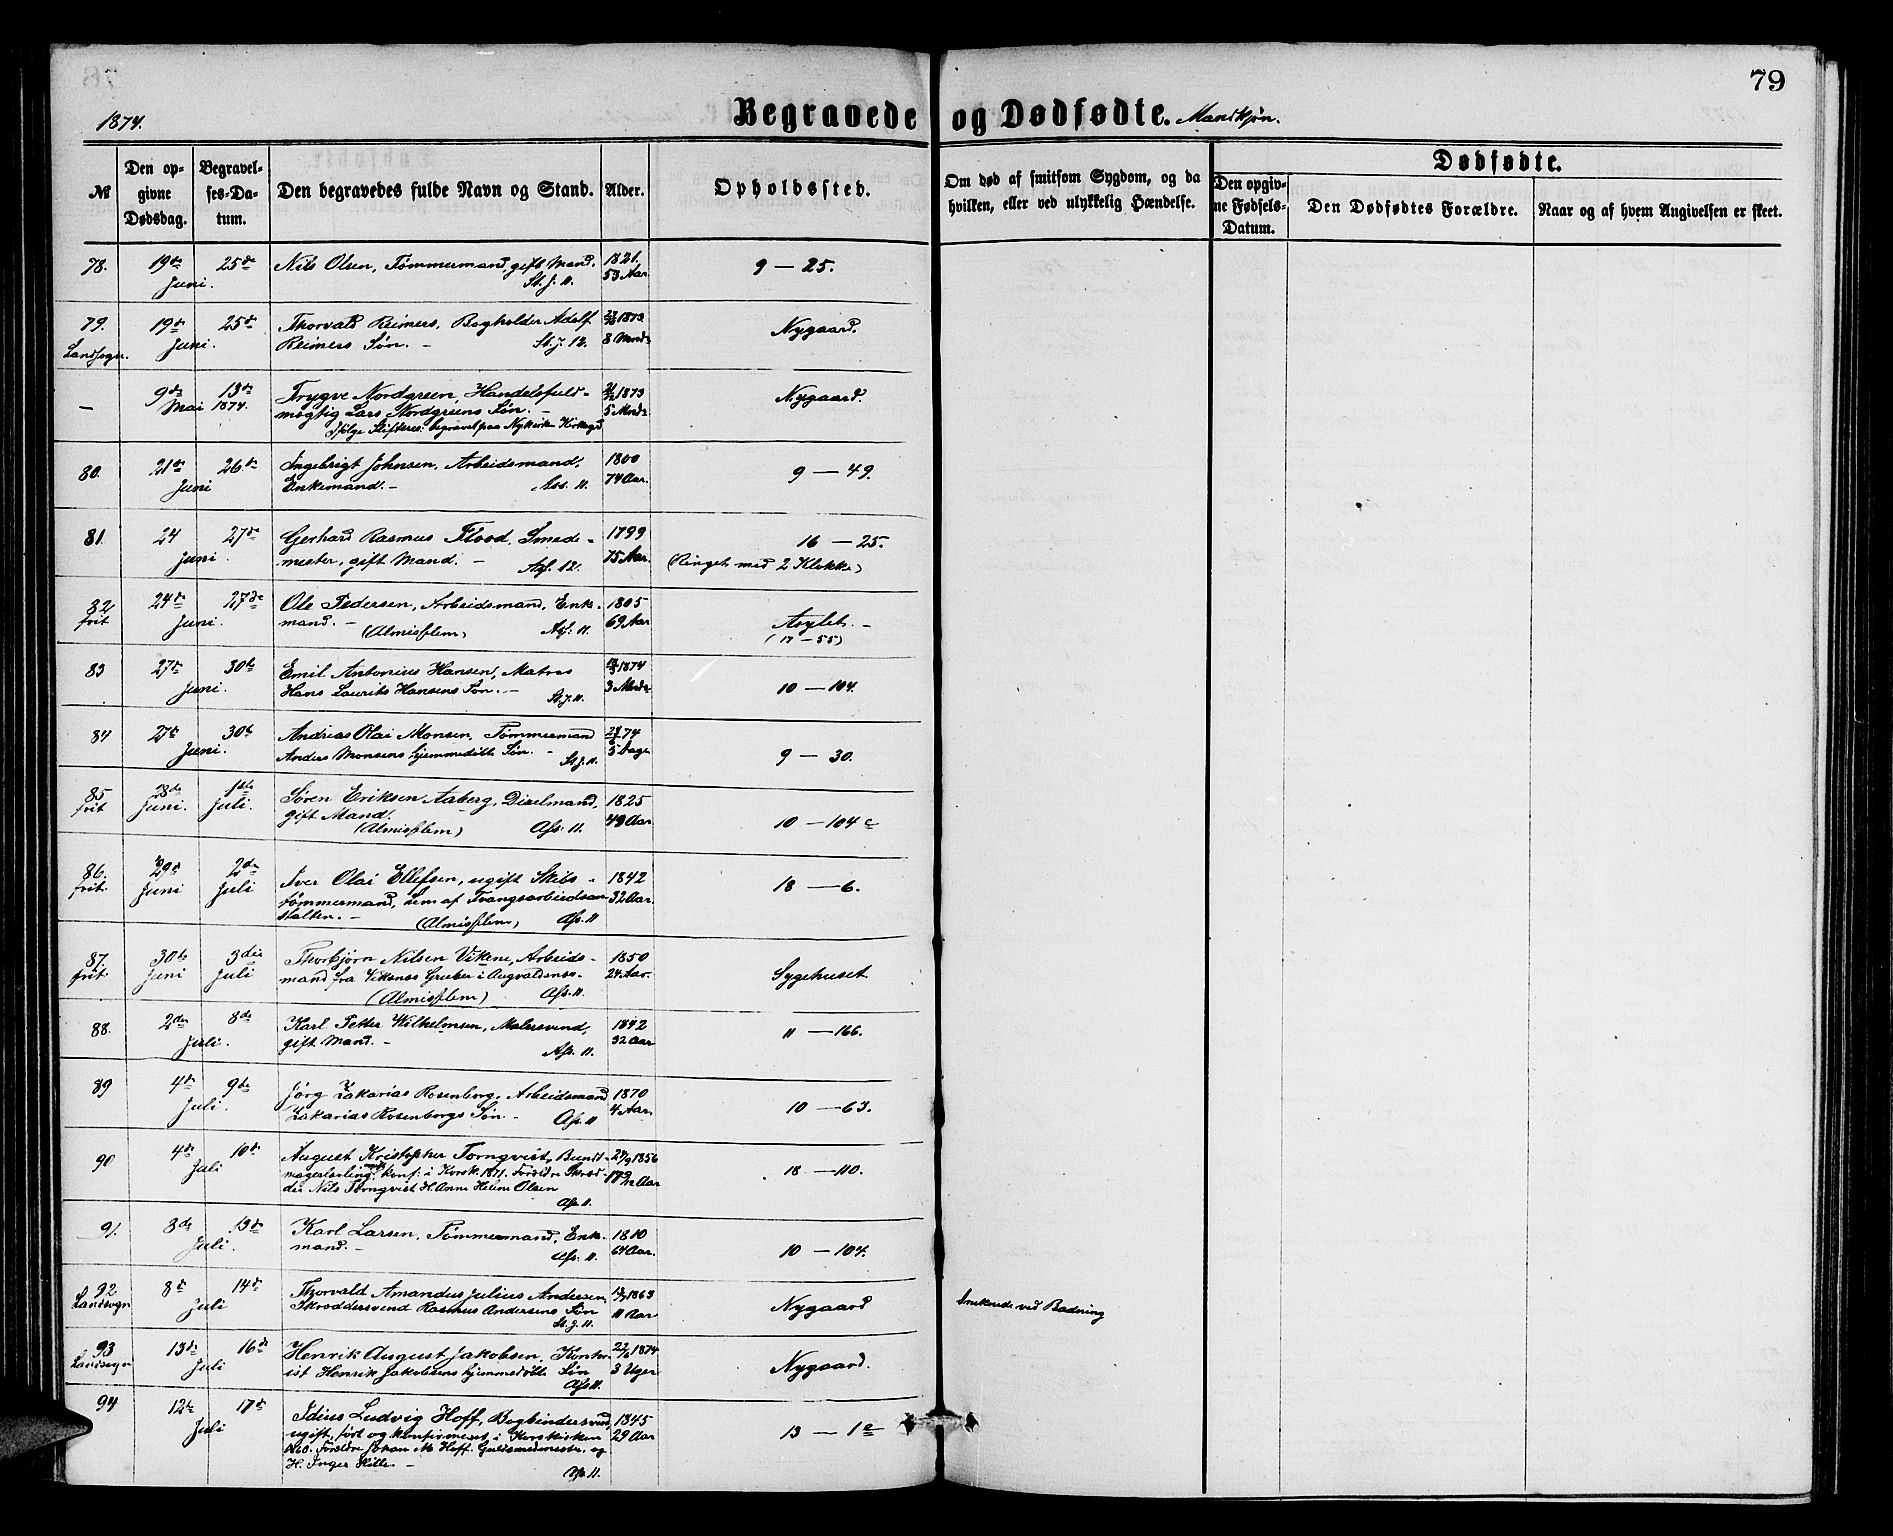 79
1874.
Begravede og Dødfødte. Mandkjøn.
№
Den opgivne Dødsdag.
Begravelses-Datum.
Den begravedes fulde Navn og Stand.
Alder.
Opholdssted.
Om død af smitsom Sygdom, og da hvilken, eller ved ulykkelig Hændelse.
Dødfødte.
Den opgivne Fødsels-Datum.
Den Dødfødtes Forældre.
Naar og af hvem Angivelsen er skeet.
78. 19de 25de Nils Olsen, Tømmermand, gift Mand. 1821. 9 — 25.
Juni. St. J. 11. 53 Aar
79. 19de 25de Thorvald Reimers, Bogholder Adolf 1873 Nygaard.
Landsogn. Juni. Reimers Søn. — St. J. 12. 8 Mnd
— 9de 13de Trygve Nordgreen, Handelsfuld- 1873 Nygaard.
Mai 1874. mægtig Lars Nordgreens Søn. — 5 Mnd
Ifølge begravet paa Nykirke Kirkegd
80. 21de 26de Ingebrigt Johnsen, Arbeidsmand, 1800 9 — 49.
Juni Enkemand. — Ass. 11. 74 Aar.
81. 24 27de Gerhard Rasmus Flood, Smede- 1799 16 — 25.
Juni. mester, gift Mand. — Asf. 12. 75 Aar. (Ringet med 2 Klokke)
82 24de 27de Ole Pedersen, Arbeidsmand, Enke- 1805 Asylet. —
frit Juni. mand. — (Almisselem) Asf: 11. 69 Aar (17 — 55)
83 27de 30te Emil Antonius Hansen, Matros 1874
Juni. Hans Laurits Hansens Søn. — St. J. 11. 3 Mnd 10 — 104.
84 27de 30te Andreas Olai Monsen, Tømmermand 74
Juni. Anders Monsens hjemmedøbte Søn. — St. J. 11. 5 Dage 9 — 30.
85 28de 1ste Søren Eriksen Aaberg, 1825
frit Juni. Juli. gift Mand. (Almisselem) Afs: 11. 49 Aar. 10 — 104 c
86. 29de 2den Iver Olai Ellefsen, ugift Skibs- 1842 18 — 6.
frit. Juni Juli tømmermand, Lem af Tvangsarbeidsan- 32 Aar.
stalten. — (Almisselem) Afs. 11
87. 30te 3die Thorbjørn Nilsen Vikene, Arbeids- 1850
frit. Juni Juli mand fra Viksnes Gruber i Augvaldsnes. 24. Aar. Sygehuset
(Almisselem) Afs. 11.
88. 2den 8de Karl Petter Wilhelmsen, Malersvend, 1842 11 — 166.
Juli. gift Mand. — Afs. 11. 32 Aar
89 4de 9de Jørg Zakarias Rosenberg, Arbeidsmand 1870
Juli. Zakarias Rosenbergs Søn. Afs. 11 4 Aar. 10 — 63.
90 4de 10de August Kristopher Tornqvist, Bundt- 29/9 1856
Juli magerlærling, konf: i Korsk. 1871. Forældre Skræd- 17 Aar 18 — 110.
der Nils Tornqvist H. Anne Helene Olsen
Afs. 11.
91. 8de 13de Karl Larsen, Tømmermand, Enke- 1810
Juli. mand. — Afs: 11. 64 Aar. 10 — 104.
92 8de 14de Thorvald Amandus Julius Andersen, 1863
Landsogn Juli Skræddersvend Rasmus Andersens Søn 11 Aar Nygaard druknede ved Badning
St. J. 11.
93 13de 16de Henrik August Jakobsen, Kontor- 1874
Landsogn Juli ist Henrik Jakobsens hjemmedøbte Søn 3 Uger Nygaard.
Afs 11.
94 12te 17de Idius Ludvig Hoff, Bogbindersvend, 1845
Juli ugift, født og konfirmeret i Korskirken 29 Aar 13 — 1 c
Forældre Johan M. Hoff, Guldsmedmester, og
H. Inger Hille. — Afs. 11.